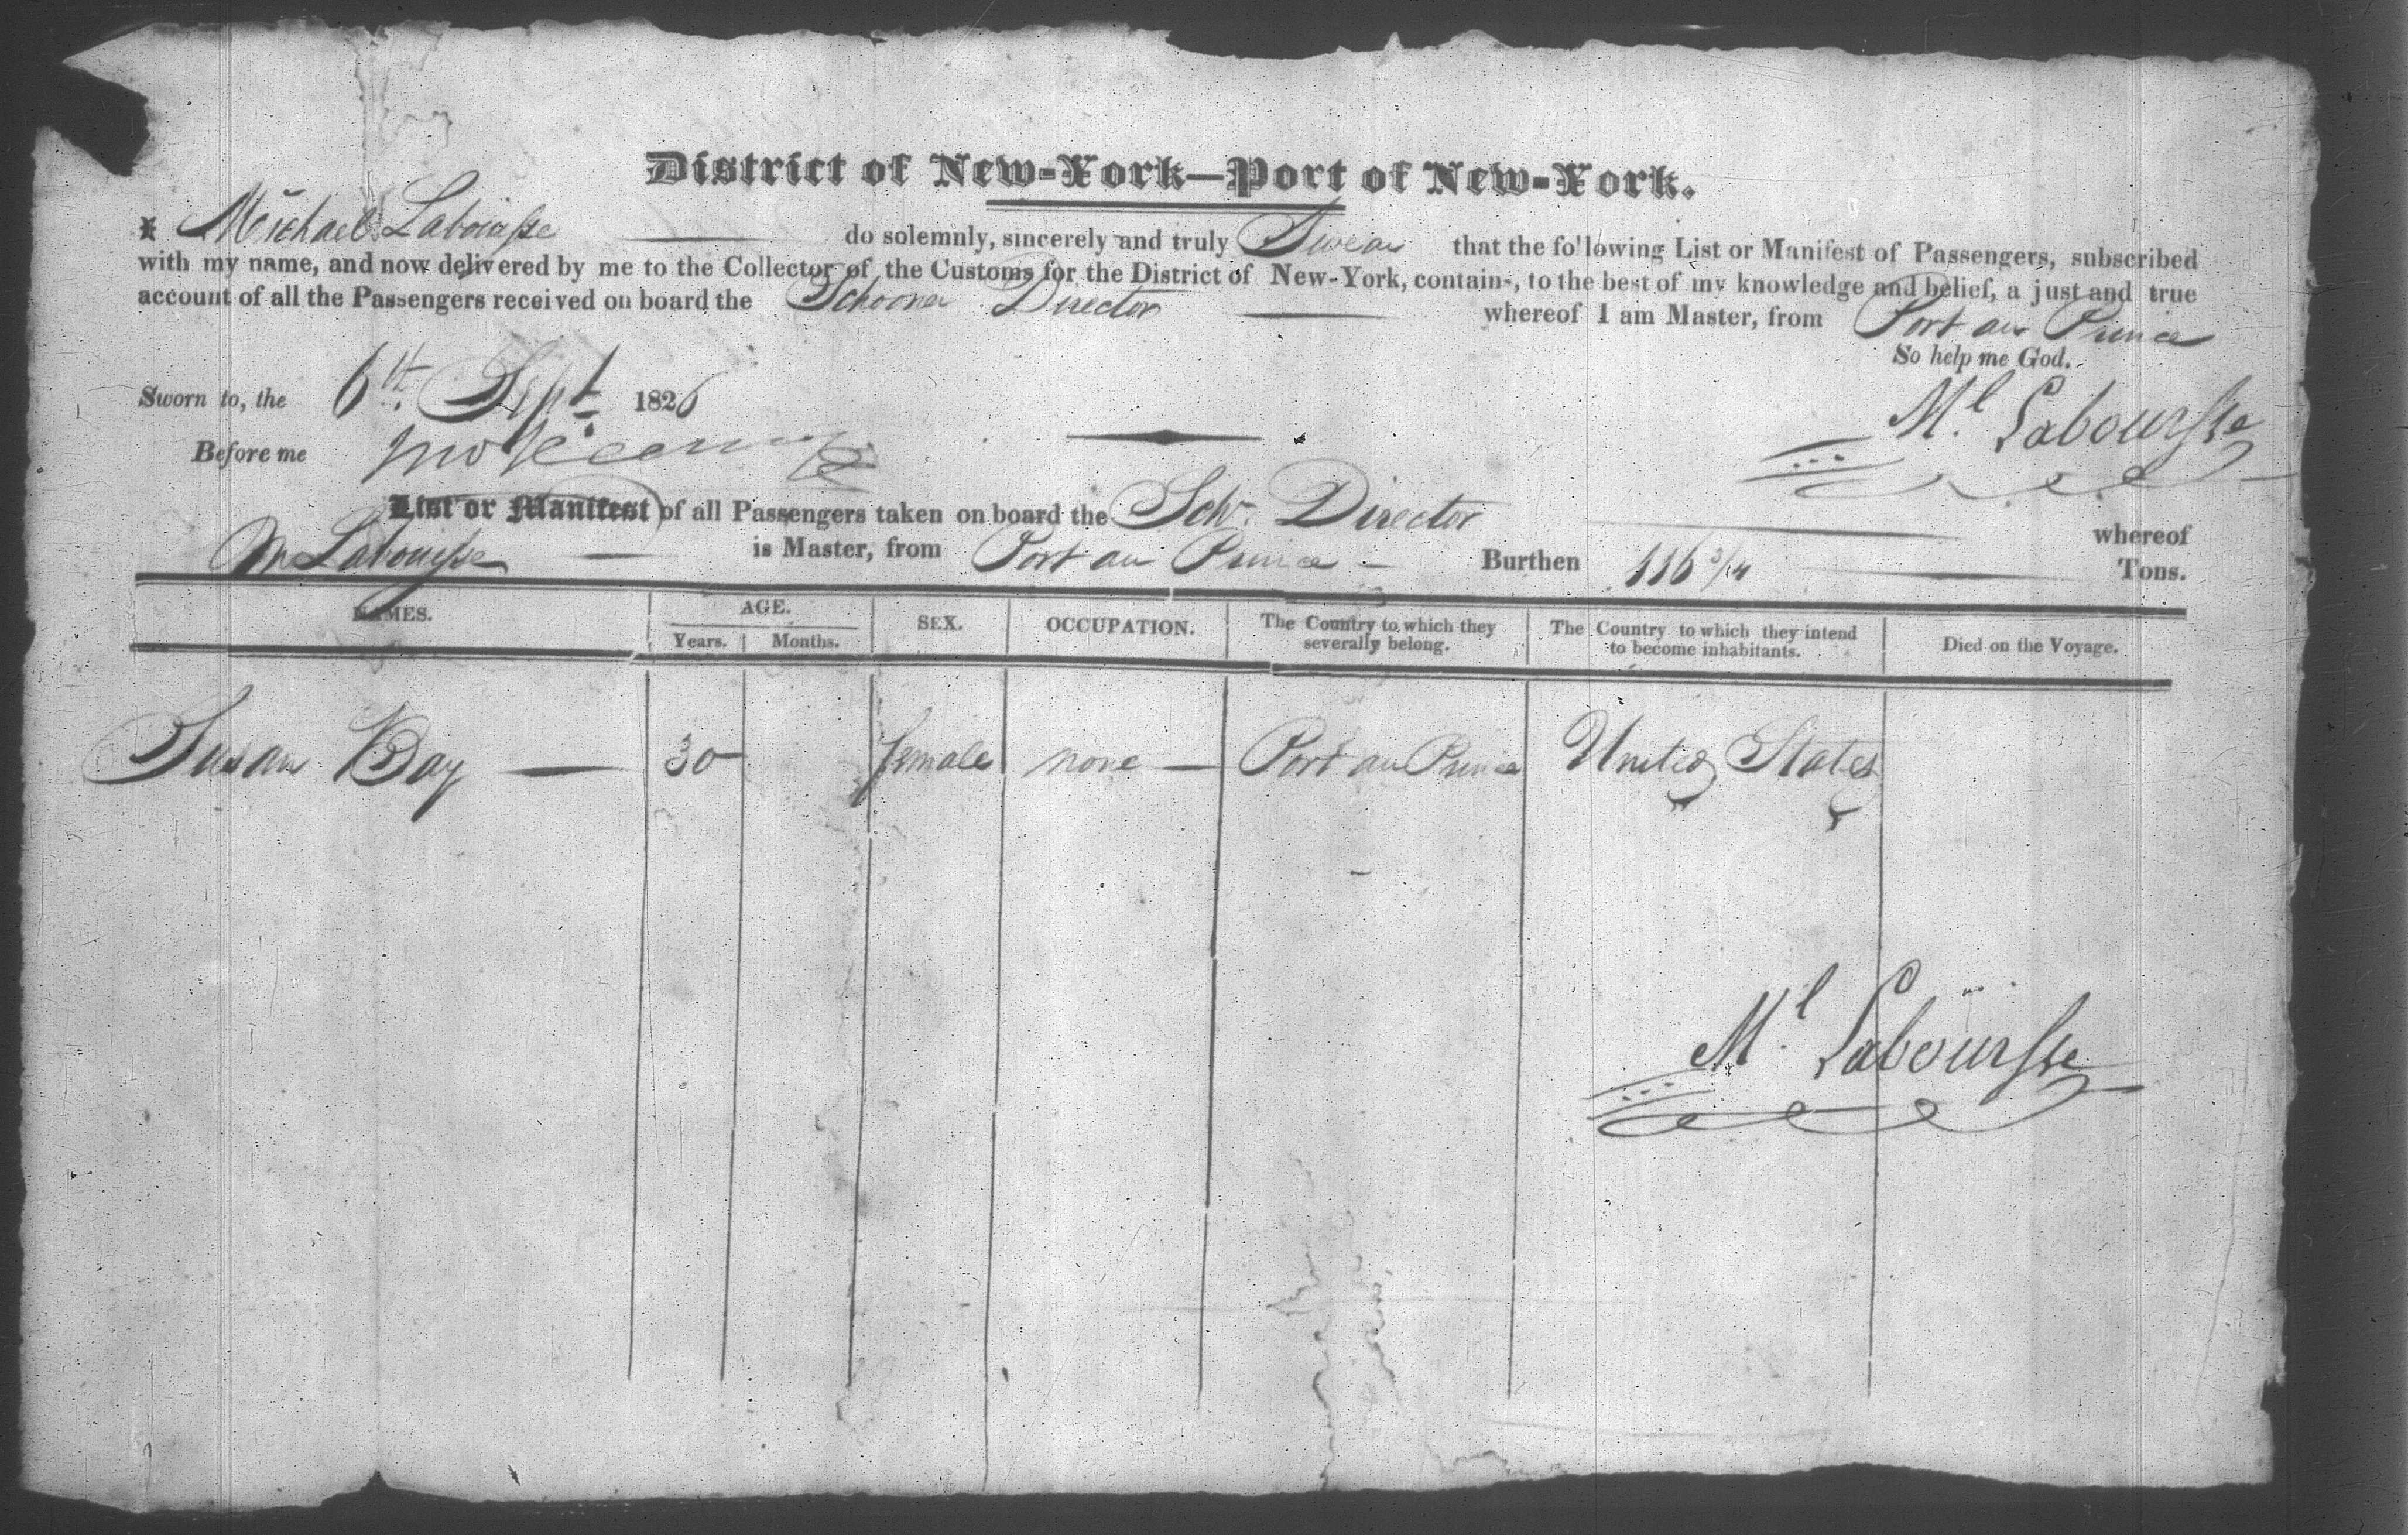 District of New-York—Port of New-York.
I Michael Labouisse do solemnly, sincerely and truly Swear that the following List or Manifest of Passengers, subscribed
with my name, and now delivered by me to the Collector of the Customs for the District of New-York, contains, to the best of my knowledge and belief, a just and true
account of all the Passengers received on board the Schooner Director whereof I am Master, from Port au Prince
So help me God.
Sworn to, the 6th. Sept. 1826
Ml. Labouisse
Before me
List or Manifest of all Passengers taken on board the Schr. Director whereof
M Labouisse is Master, from Port au Prince Burthen 116 Tons.
NAMES. AGE. SEX. OCCUPATION. The Country to which they severally belong. The Country to which they intend to become inhabitants. Died on the Voyage.
Years. Months.
Susan Bay — 30 female none — Port au Prince United States
Ml. Labouisse